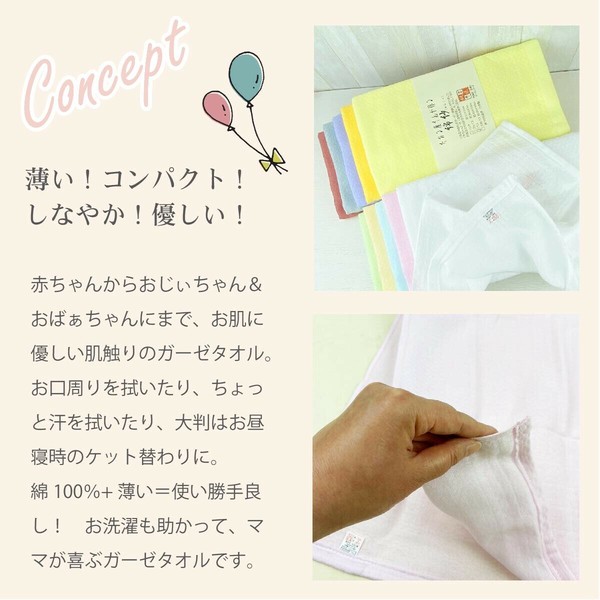 Concept
薄い！コンパクト！
しなやか！優しい！
赤ちゃんからおじぃちゃん＆
おばぁちゃんにまで、お肌に
優しい肌触りのガーゼタオル。
お口周りを拭いたり、ちょっ
と汗を拭いたり、大判はお昼
寝時のケット替わりに。
綿 100%+ 薄い＝使い勝手良
し！　お洗濯も助かって、マ
マが喜ぶガーゼタオルです。